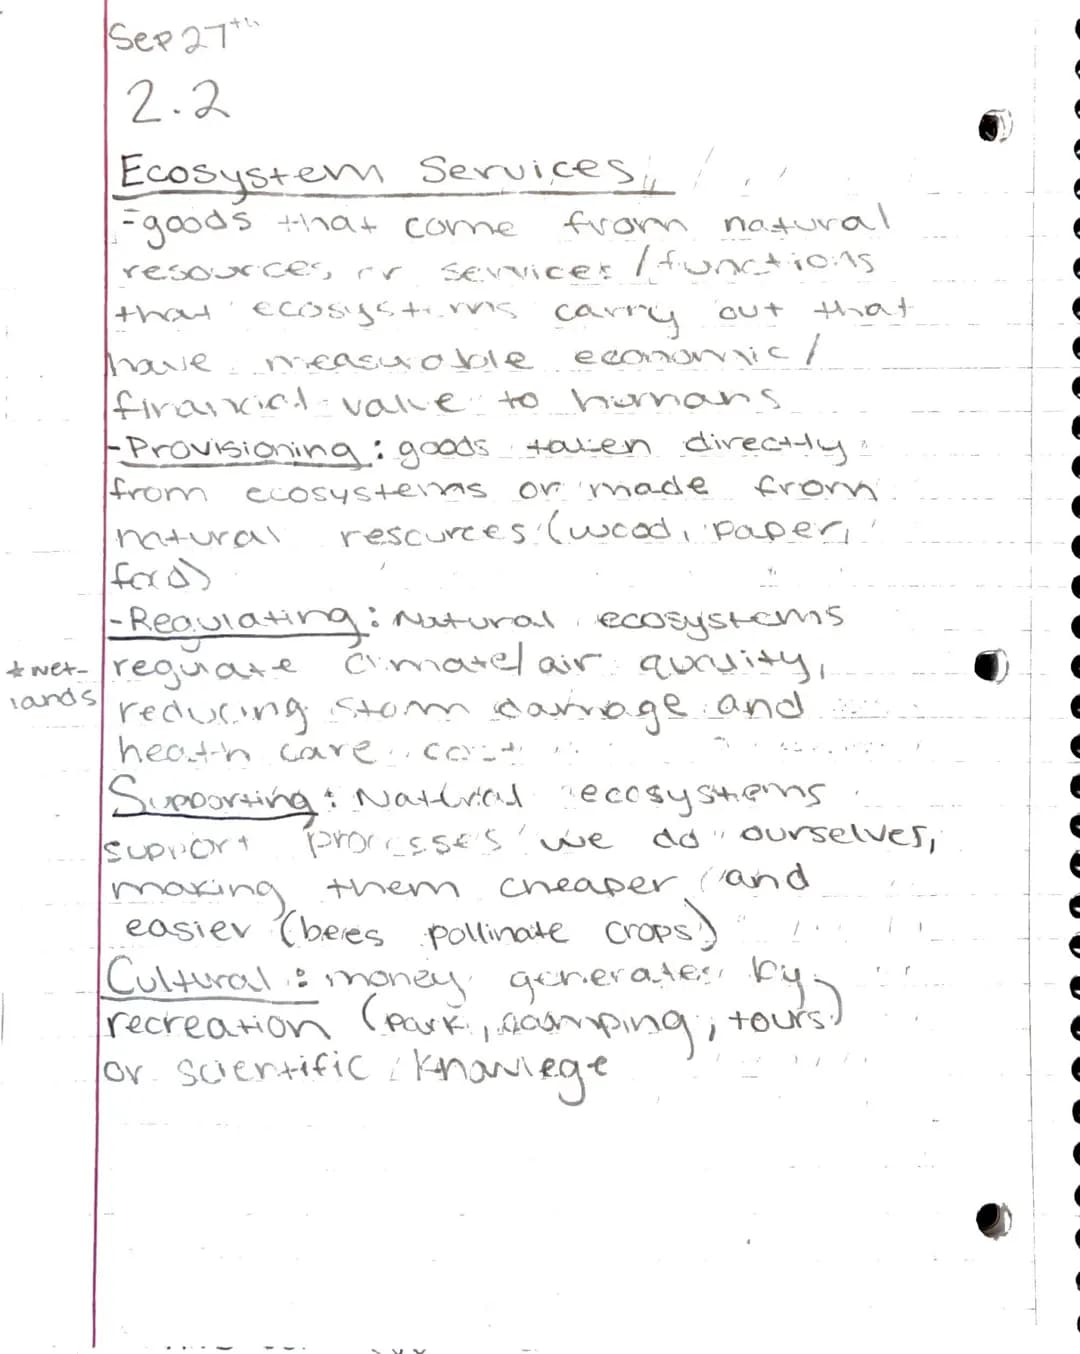 Sep 27th
2.2
Ecosystem Services
-goods that come from natural
resources, or services / functions
that ecosystems carry out that
have measurable economic /
financial value to humans
-Provisioning: goods taken directly
from ecosystems or made from
natural resources (wood, paper,
food)
-Regulating: Natural ecosystems
*wet-
lands
regulate climate/air quality,
reducing storm damage and
health care cost
Supporting: Natural ecosystems
support processes we do ourselves,
making them cheaper and
easier (bees pollinate crops)
Cultural: money generates by
recreation (park, camping, tours)
or scientific knowlege